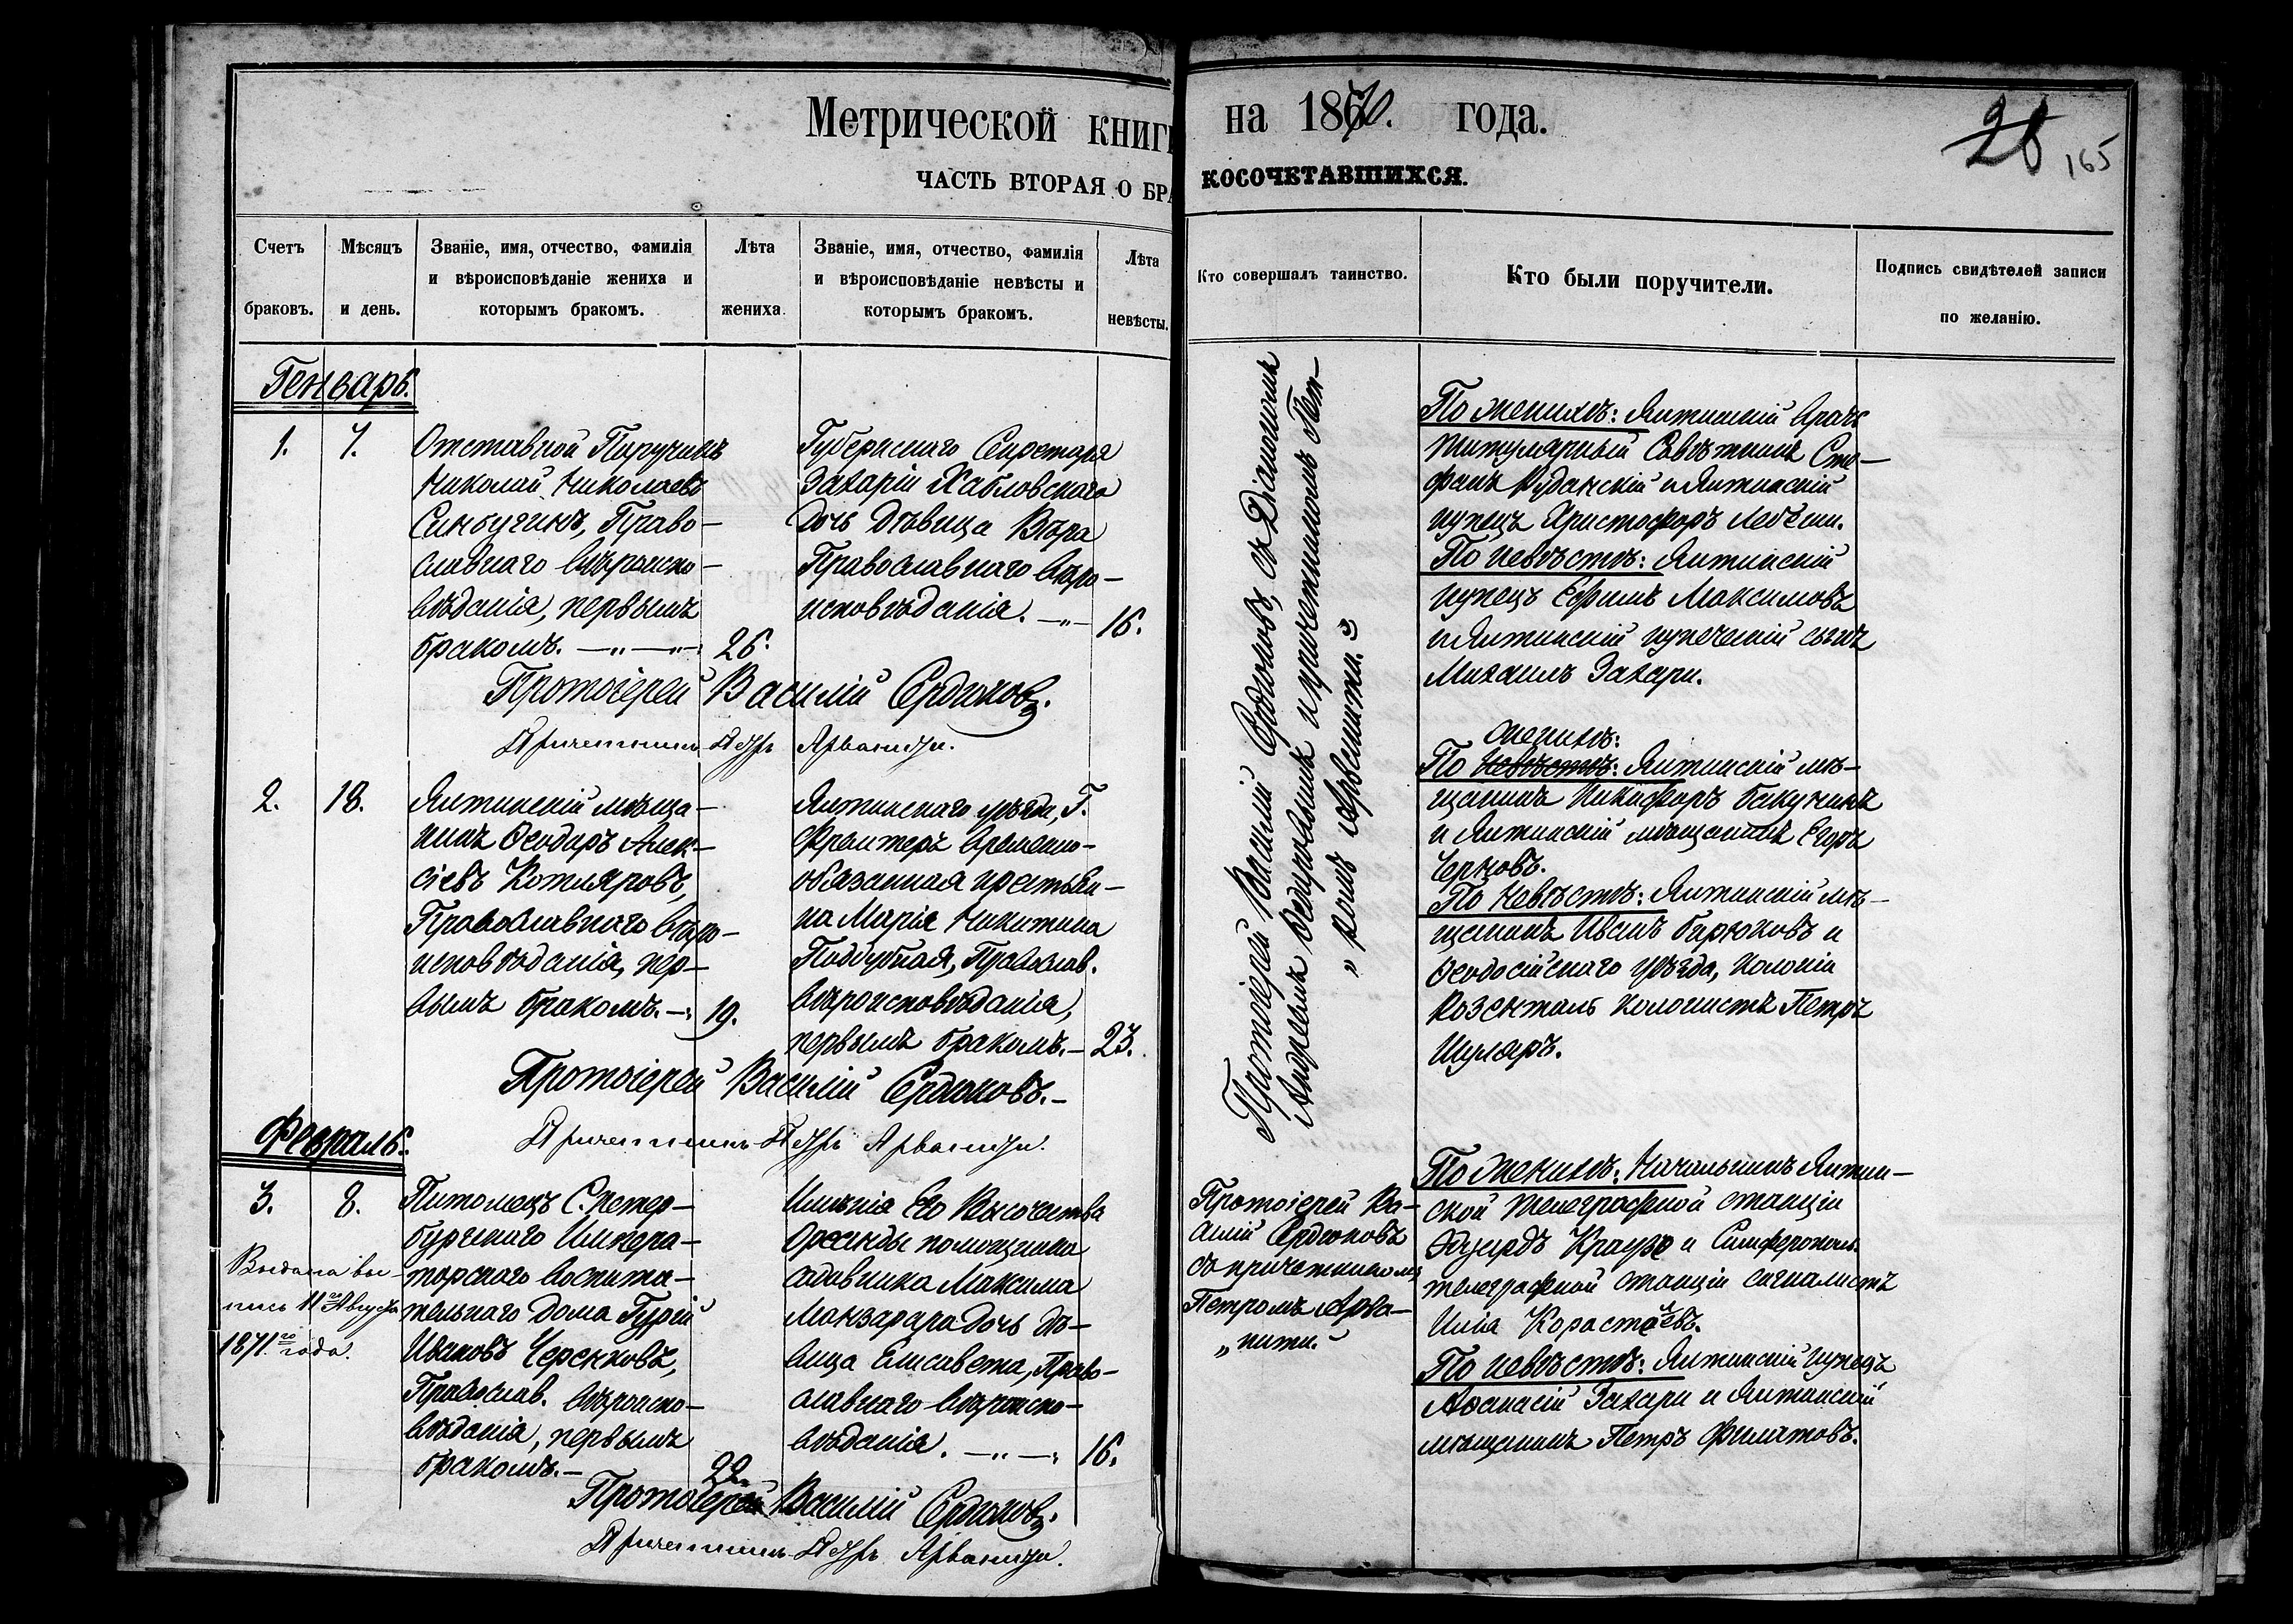 Метрической книги на 1870. года.
28 165
ЧАСТЬ ВТОРАЯ О БРАКОСОЧЕТАВШИХСЯ.
Счетъ браковъ.
Мѣсяцъ и день.
Званіе, имя, отчество, фамилія
и вѣроисповѣданіе жениха и
которымъ бракомъ.
Лѣта жениха.
Званіе, имя, отчество, фамилія
и вѣроисповѣданіе невѣсты и
которымъ бракомъ.
Лѣта невѣсты.
Кто совершалъ таинство.
Кто были поручители.
Подпись свидѣтелей записи
по желанію.
Генварь.
1. 7.
Отставной Поручикъ
Николай Николаевъ
Синбугинъ, Право-
славнаго вѣроиспо-
вѣданія, первымъ
бракомъ. —„—„— 26.
Губернскаго Секретаря
Захарія Хабловскаго
дочь дѣвица Вѣра
Православнаго вѣро-
исповѣданія. —„— 16.
Протоіерей Василій Сердюковъ, съ Діакономъ
Андреемъ и причетникомъ Пет-
„ромъ Арванити.„
По женихѣ: Ялтинскій врачъ
титулярный Совѣтникъ Сте-
фанъ Руданскій и Ялтинскій
купецъ Христофоръ Лебези.
По невѣстѣ: Ялтинскій
купецъ Ефимъ Максимовъ
и Ялтинскій купеческій сынъ
Михаилъ Захари.
Протоіерей Василій Сердюковъ.
Причетникъ Петръ Арванити.
2. 18.
Ялтинскій мѣща-
нинъ Ѳеодоръ Алек-
сіевъ Котляровъ,
Православнаго вѣро-
исповѣданія, пер-
вымъ бракомъ. —: 19.
Ялтинскаго уѣзда, Г.
Фрейтеръ временно-
обязанная крестьян-
ка Марія Никитина
Поддубная, Православ.
вѣроисповѣданія,
первымъ бракомъ. — 23.
женихѣ:
По невѣстѣ: Ялтинскій мѣ-
щанинъ Никифоръ Бакунинъ
и Ялтинскій мѣщанинъ Егоръ
Черновъ.
По невѣстѣ: Ялтинскій мѣ-
щанинъ Иванъ Бирюковъ и
Ѳеодосійскаго уѣзда, колоніи
Розенталь колонистъ Петръ
Шуляръ.
Протоіерей Василій Сердюковъ.—
Причетникъ Петръ Арванити.
Февраль.
3. 8.
Выдана вы-
пись 11го Августа
1871го года.
Питомецъ С.петер-
бургскаго Импера-
торскаго воспита-
тельнаго дома Гурій
Ивановъ Черенковъ,
Православ. вѣроиспо-
вѣданія, первымъ
бракомъ.— 22.
Имѣнія Его Высочества
Ореанды помощника
садовника Максима
Манзарара дочь дѣ-
вица Елисавета, Право-
славнаго вѣроиспо-
вѣданія. —„—: 16.
Протоіерей Ва-
силій Сердюковъ
съ причетникомъ
Петромъ Арва-
„нити.„
По женихѣ: Начальникъ Ялтин-
ской телеграфной станціи
Эдуардъ Краузе и Симферополь.
телеграфной станціи сигналистъ
Илія Корастелевъ.
По невѣстѣ: Ялтинскій купецъ
Аѳанасій Захари и Ялтинскій
мѣщанинъ Петръ Филатовъ.
Протоіерей Василій Сердюковъ.
Причетникъ Петръ Арванити.